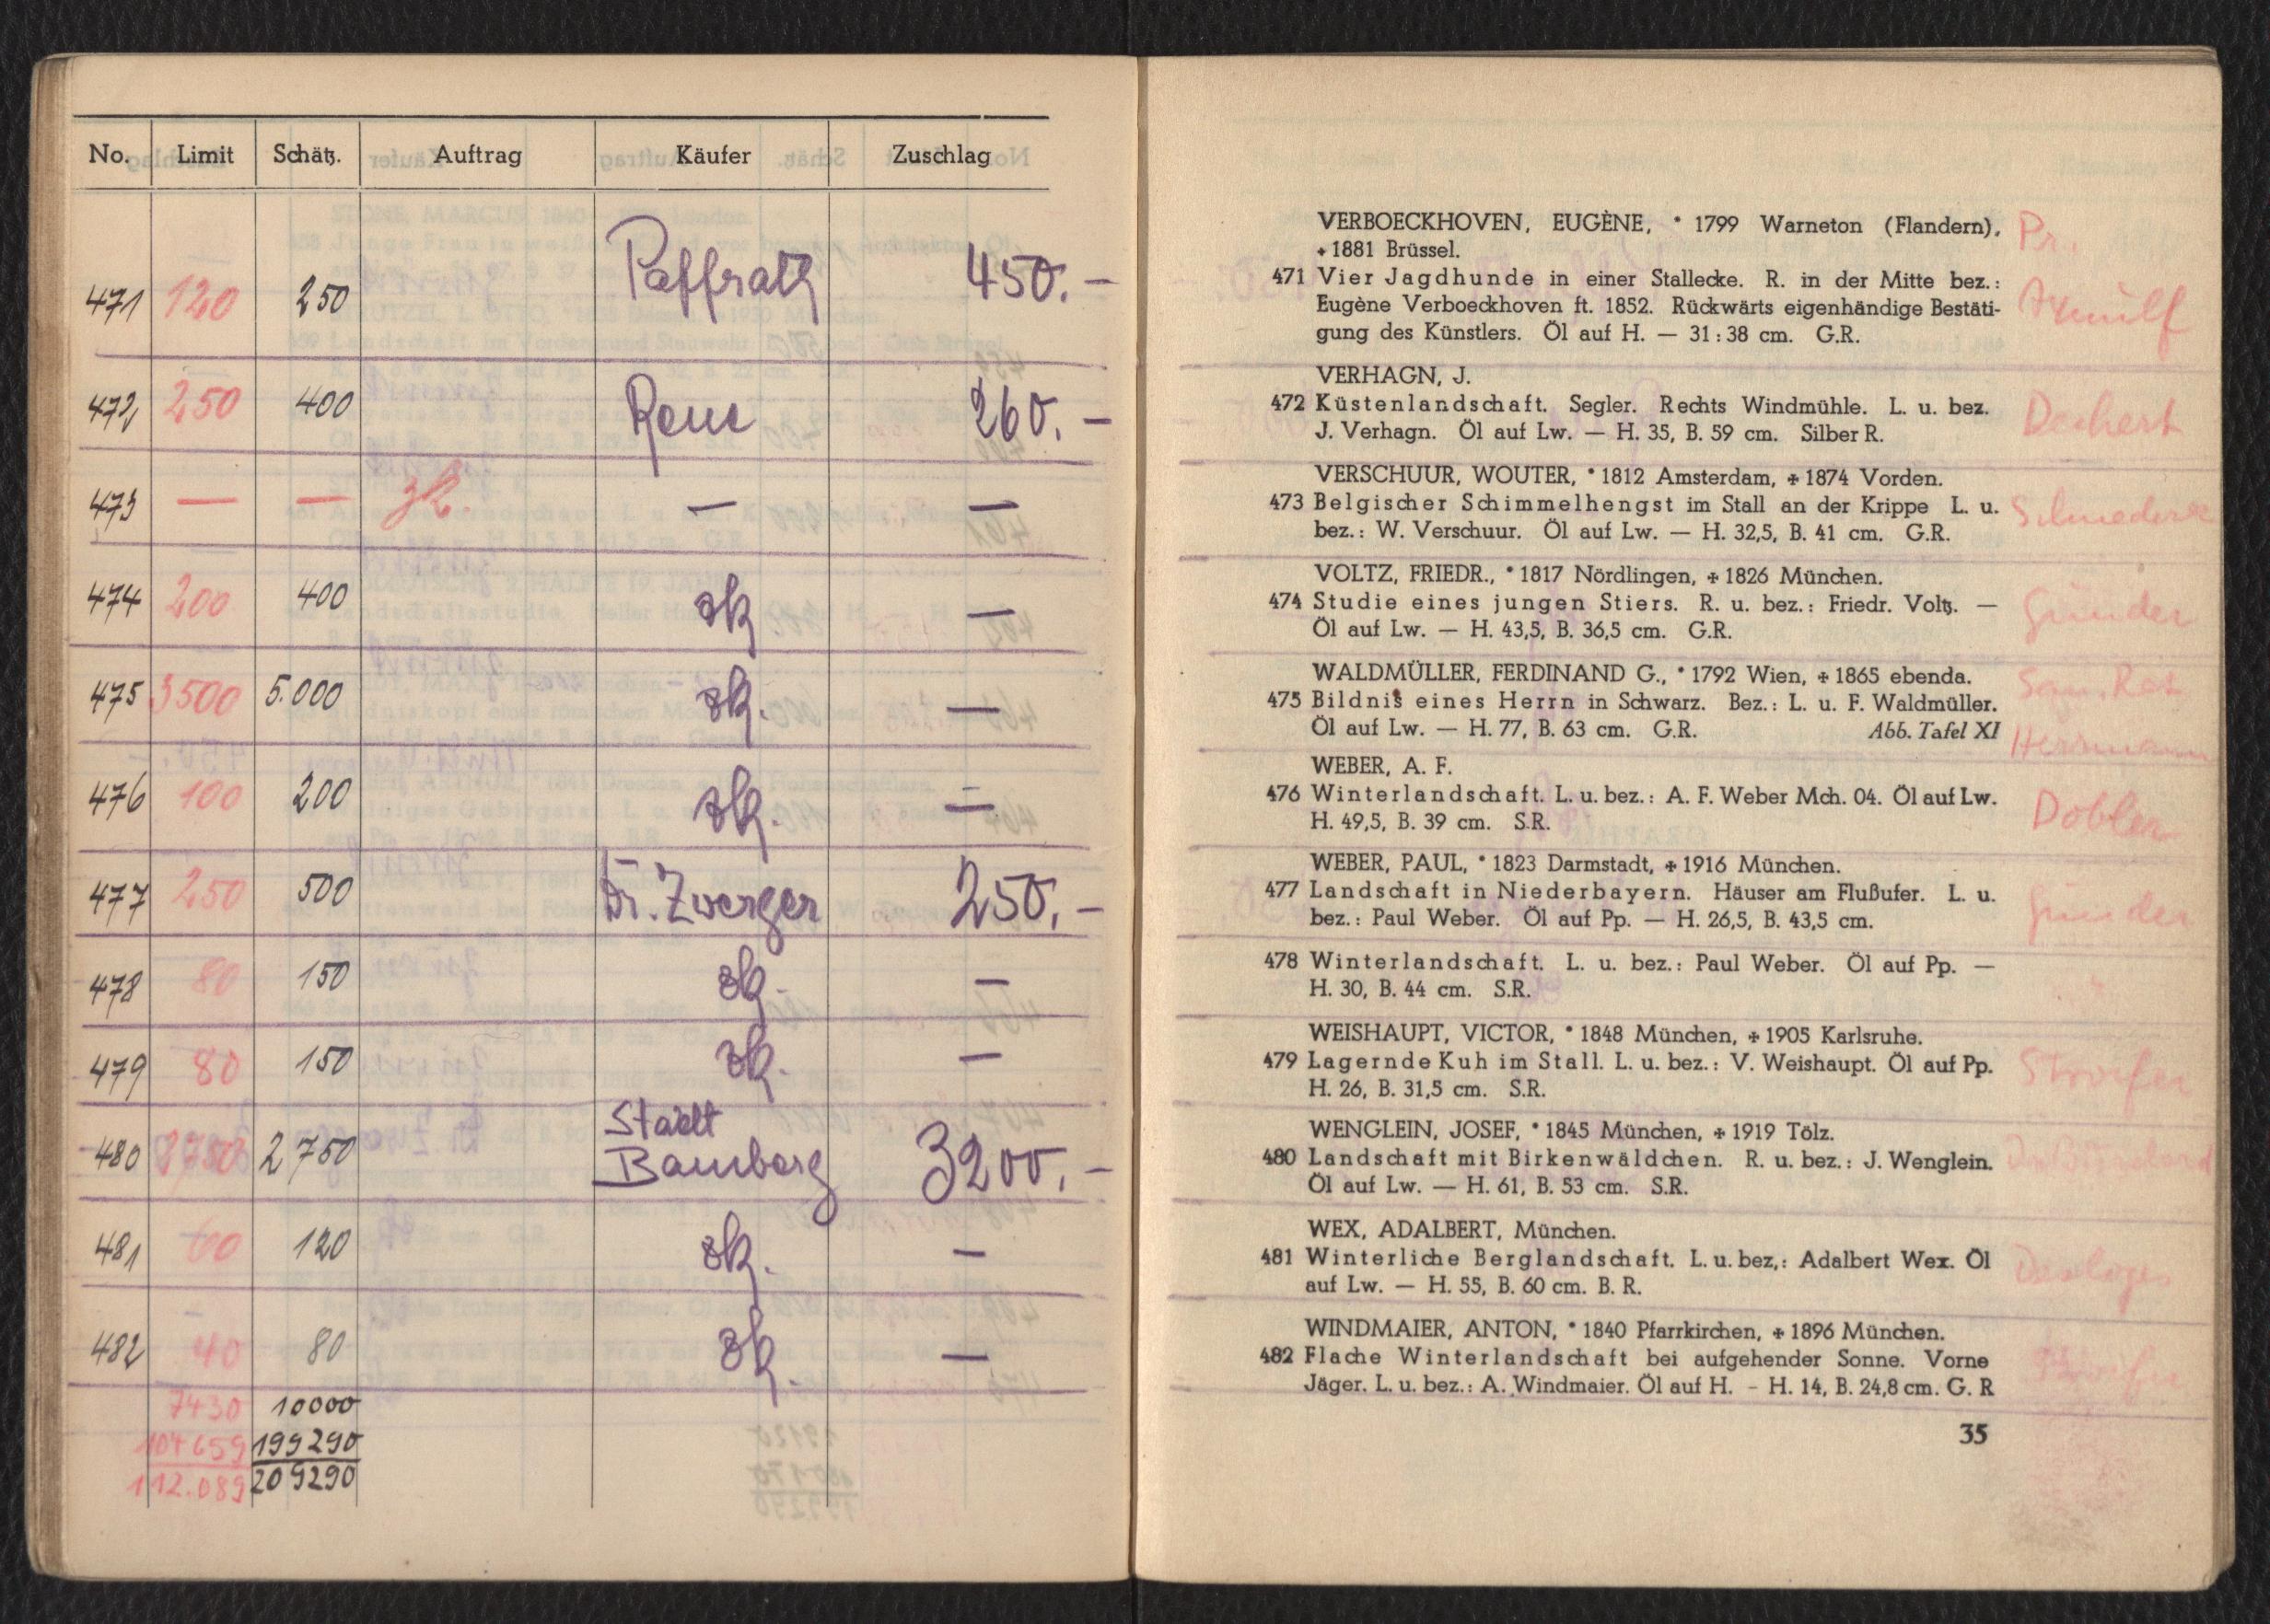 No. Limit Schätz. Auftrag Käufer Zuschlag
471 120 250 Paffrath 450.-
472 250 400 260.-
473 — — zk. — —
474 200 400 zk —
475 3500 5.000 zk. —
476 100 200 zk. —
477 250 500 Dr. Zwerger 250.-
478 80 150 zk. —
479 80 150 zk. —
480 2750 2750 Stadt Bamberg 3200.-
481 60 120 zk. —
482 40 80 zk. —
7430 10000
104659 199290
112.089 209290
VERBOECKHOVEN, EUGÈNE, * 1799 Warneton (Flandern), Pr.
+ 1881 Brüssel.
471 Vier Jagdhunde in einer Stallecke. R. in der Mitte bez.:
Eugène Verboeckhoven ft. 1852. Rückwärts eigenhändige Bestäti- Arnulf
gung des Künstlers. Öl auf H. — 31 : 38 cm. G.R.
VERHAGN, J.
472 Küstenlandschaft. Segler. Rechts Windmühle. L. u. bez. Dechert
J. Verhagn. Öl auf Lw. — H. 35, B. 59 cm. Silber R.
VERSCHUUR, WOUTER, * 1812 Amsterdam, + 1874 Vorden.
473 Belgischer Schimmelhengst im Stall an der Krippe L. u.
bez.: W. Verschuur. Öl auf Lw. — H. 32,5, B. 41 cm. G.R.
VOLTZ, FRIEDR., * 1817 Nördlingen, + 1826 München.
474 Studie eines jungen Stiers. R. u. bez.: Friedr. Voltz. — Gründer
Öl auf Lw. — H. 43,5, B. 36,5 cm. G.R.
WALDMÜLLER, FERDINAND G., * 1792 Wien, + 1865 ebenda. San. Rat
475 Bildnis eines Herrn in Schwarz. Bez.: L. u. F. Waldmüller.
Öl auf Lw. — H. 77, B. 63 cm. G.R. Abb. Tafel XI Herrmann
WEBER, A. F.
476 Winterlandschaft. L. u. bez.: A. F. Weber Mch. 04. Öl auf Lw. Dobler
H. 49,5, B. 39 cm. S.R.
WEBER, PAUL, * 1823 Darmstadt, + 1916 München.
477 Landschaft in Niederbayern. Häuser am Flußufer. L. u. Gründer
bez.: Paul Weber. Öl auf Pp. — H. 26,5, B. 43,5 cm.
478 Winterlandschaft. L. u. bez.: Paul Weber. Öl auf Pp. — "
H. 30, B. 44 cm. S.R.
WEISHAUPT, VICTOR, * 1848 München, + 1905 Karlsruhe.
479 Lagernde Kuh im Stall. L. u. bez.: V. Weishaupt. Öl auf Pp.
H. 26, B. 31,5 cm. S.R.
WENGLEIN, JOSEF, * 1845 München, + 1919 Tölz.
480 Landschaft mit Birkenwäldchen. R. u. bez.: J. Wenglein.
Öl auf Lw. — H. 61, B. 53 cm. S.R.
WEX, ADALBERT, München.
481 Winterliche Berglandschaft. L. u. bez,: Adalbert Wex. Öl
auf Lw. — H. 55, B. 60 cm. B. R.
WINDMAIER, ANTON, * 1840 Pfarrkirchen, + 1896 München.
482 Flache Winterlandschaft bei aufgehender Sonne. Vorne
Jäger. L. u. bez.: A. Windmaier. Öl auf H. - H. 14, B. 24,8 cm. G. R
35